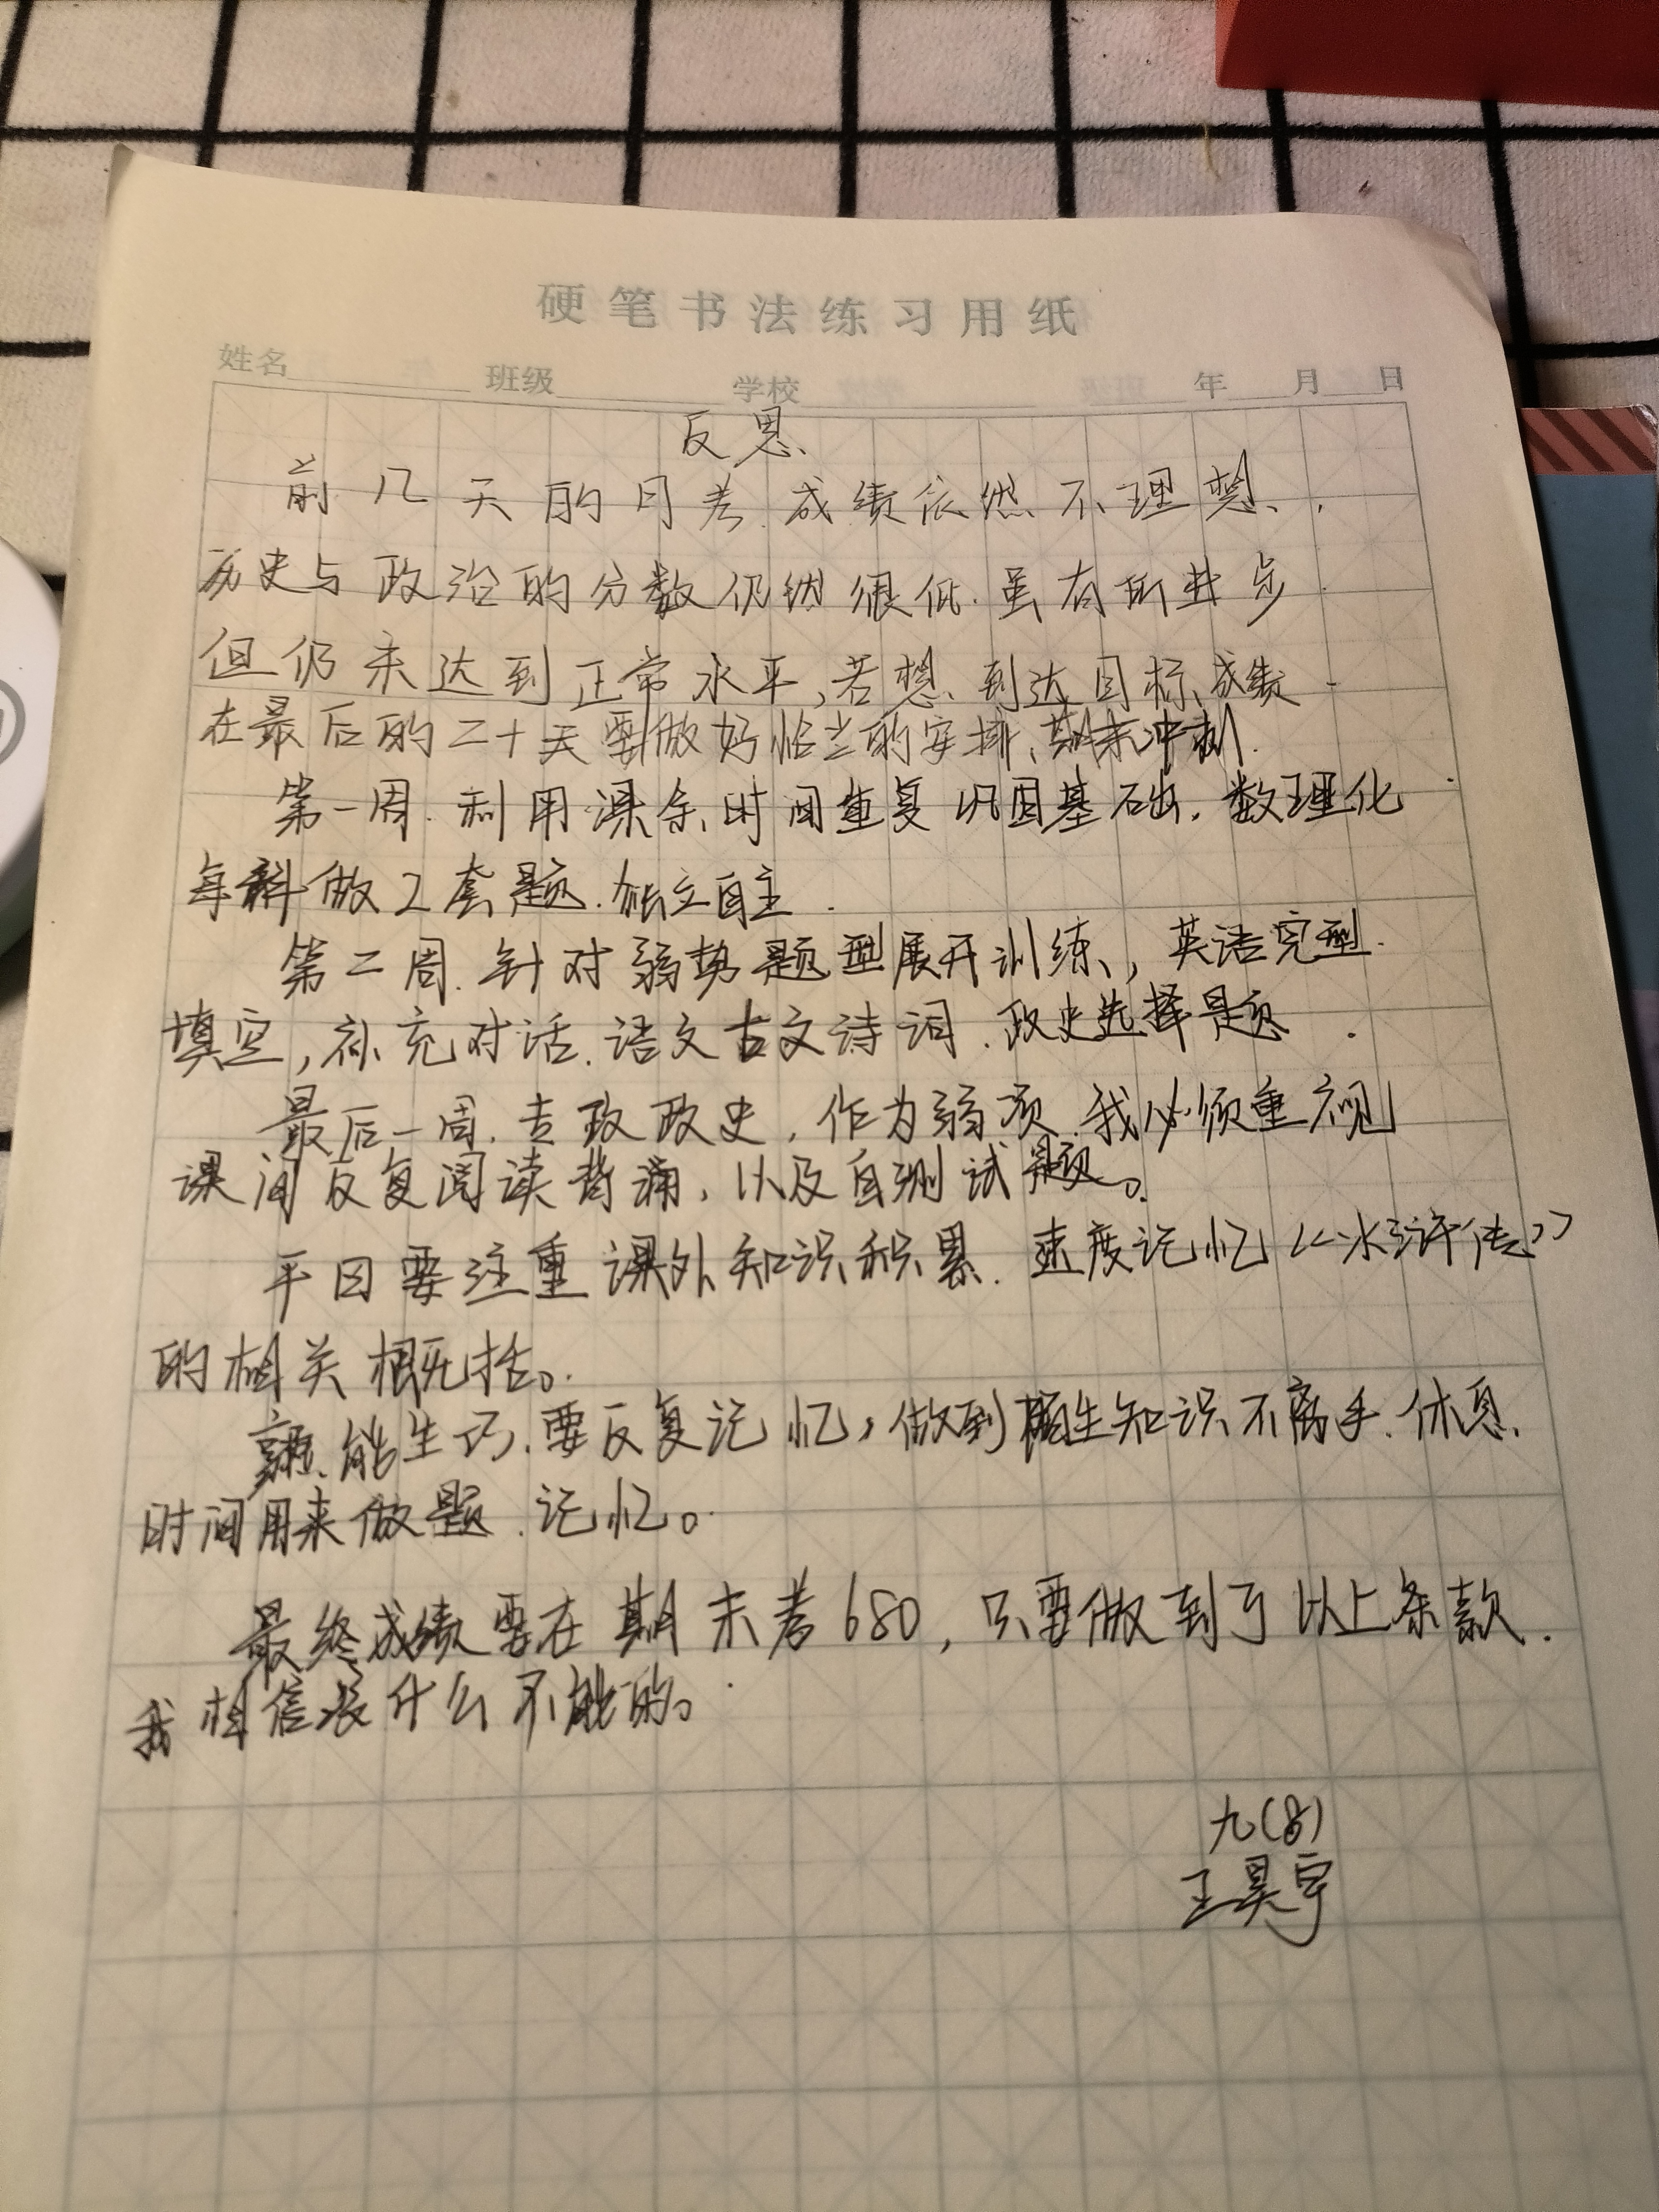 硬笔书法练习用纸
姓名 班级 学校 年 月 日
反思
前几天的月考成绩依然不理想.
历史与政治的分数仍然很低.虽有所进步
但仍未达到正常水平,若想到达目标成绩
在最后的二十天要做好恰当的安排,期末冲刺.
第一周.利用课余时间重复巩固基础.数理化
每科做2套题.独立自主.
第二周.针对弱势题型展开训练,英语完型
填空,补充对话.语文古文诗词.政史选择题.
最后一周.专攻政史,作为弱项.我必须重视
课间反复阅读背诵,以及自测试题。
平日要注重课外知识积累.速度记忆《水浒传》
的相关概括。
熟能生巧.要反复记忆,做到陌生知识不离手.休息
时间用来做题.记忆。
最终成绩要在期末考680,只要做到了以上条款.
我相信没什么不能的。
九(8)
王昊宇